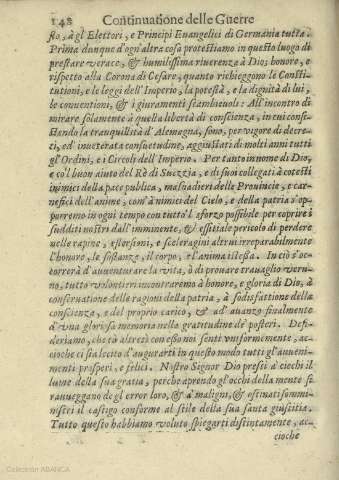 148 Continuatione delle Guerre
sio, à gl'Elettori, e Principi Euangelici di Germania tutta.
Prima dunque d'ogn'altra cosa protestiamo in questo luogo di
prestare verace, & humilissima riuerenza à Dio; honore, e
rispetto alla Corona di Cesare, quanto richieggono le Consti-
tutioni, e le leggi dell'Imperio, la potestà, e la dignità di lui,
le conuentioni, & i giuramenti scambieuoli: All'incontro di
mirare solamente à quella libertà di conscienza, in cui consi-
stendo la tranquillità d'Alemagna, sono, per vigore di decre-
ti, ed inueterata consuetudine, aggiustati di molti anni tutti
gl'Ordini, e i Circoli dell'Imperio. Per tanto in nome di Dio,
e co'l buon aiuto del Rè di Suezzia, e di suoi collegati à cotesti
inimici della pace publica, masnadieri delle Prouincie, e car-
nefici dell'anime, com'à nimici del Cielo, e della patria s'op-
porremo in ogni tempo con tutto'l sforzo possibile per coprire i
sudditi nostri dall'imminente, & essitiale pericolo di perdere
nelle rapine, estorsioni, e sceleragini altrui irreparabilmente
l'honore, le sostanze, il corpo, e l'anima istessa. In ciò s'oc-
correrà d'auuenturare la vita, ò di prouare trauaglio veru-
no, tutto volontieri incontraremo à honore, e gloria di Dio, à
conseruatione delle ragioni della patria, à sodisfattione della
conscienza, e del proprio carico, & ad auanzo finalmente
d'vna gloriosa memoria nella gratitudine de' posteri. Desi-
deriamo, che tù altresì con esso noi senti vniformemente, ac-
cioche ci sia lecito d'augurarti in questo modo tutti gl'auueni-
menti prosperi, e felici. Nostro Signor Dio presti à ciechi il
lume della sua gratia, perche aprendo gl'occhi della mente si
rauueggano de gl'error loro, & à maligni, & ostinati sommi-
nistri il castigo conforme al stile della sua santa giustitia.
Tutto questo habbiamo voluto spiegarti distintamente, ac-
cioche
Colección ABANCA